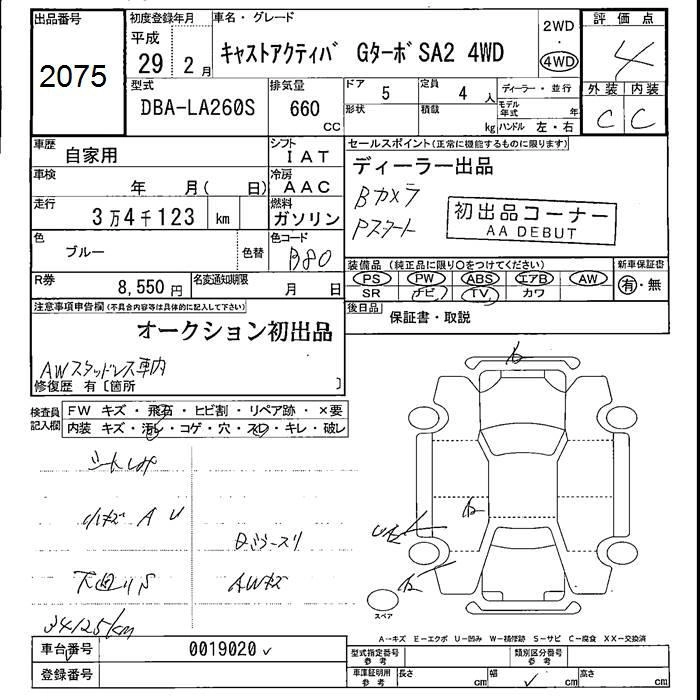 出品番号
2075
初度登録年月
平成
29年 2月
車名・グレード
キャストアクティバ Gターボ SA2 4WD
2WD
4WD
評価点
4
外装 内装
C C
型式
DBA-LA260S
排気量
660
CC
ドア 5
形状
定員 4 人
積載 kg
ディーラー・並行
モデル年式 年
ハンドル 左・右
車歴
自家用
シフト
IAT
セールスポイント(正常に機能するものに限ります)
ディーラー出品
Bカメラ
Pスタート
初出品コーナー
AA DEBUT
車検
年 月( 日)
冷房
AAC
走行
3万4千123 km
燃料
ガソリン
色
ブルー
色替
色コード
B80
R券
8,550円
名変通知期限
月 日
装備品 (純正品に限り○をつけてください)
新車保証書
PS PW ABS エアB AW
有・無
SR ナビ TV カワ
後日品
保証書・取説
注意事項申告欄(不具合内容等は具体的に記入して下さい)
オークション初出品
AWスタッドレス車内
修復歴 有〔箇所 〕
検査員記入欄
FW キズ・飛石・ヒビ割・リペア跡・×要
内装 キズ・汚レ・コゲ・穴・スレ・キレ・破レ
小キズ A U
AWキズ
下回りS
34125km
スペア
A─キズ E─エクボ U─凹み W─補修跡 S─サビ C─腐食 XX─交換済
車台番号
0019020
登録番号
型式指定番号
参考
類別区分番号
参考
車庫証明用
参考
長さ cm
幅 cm
高さ cm